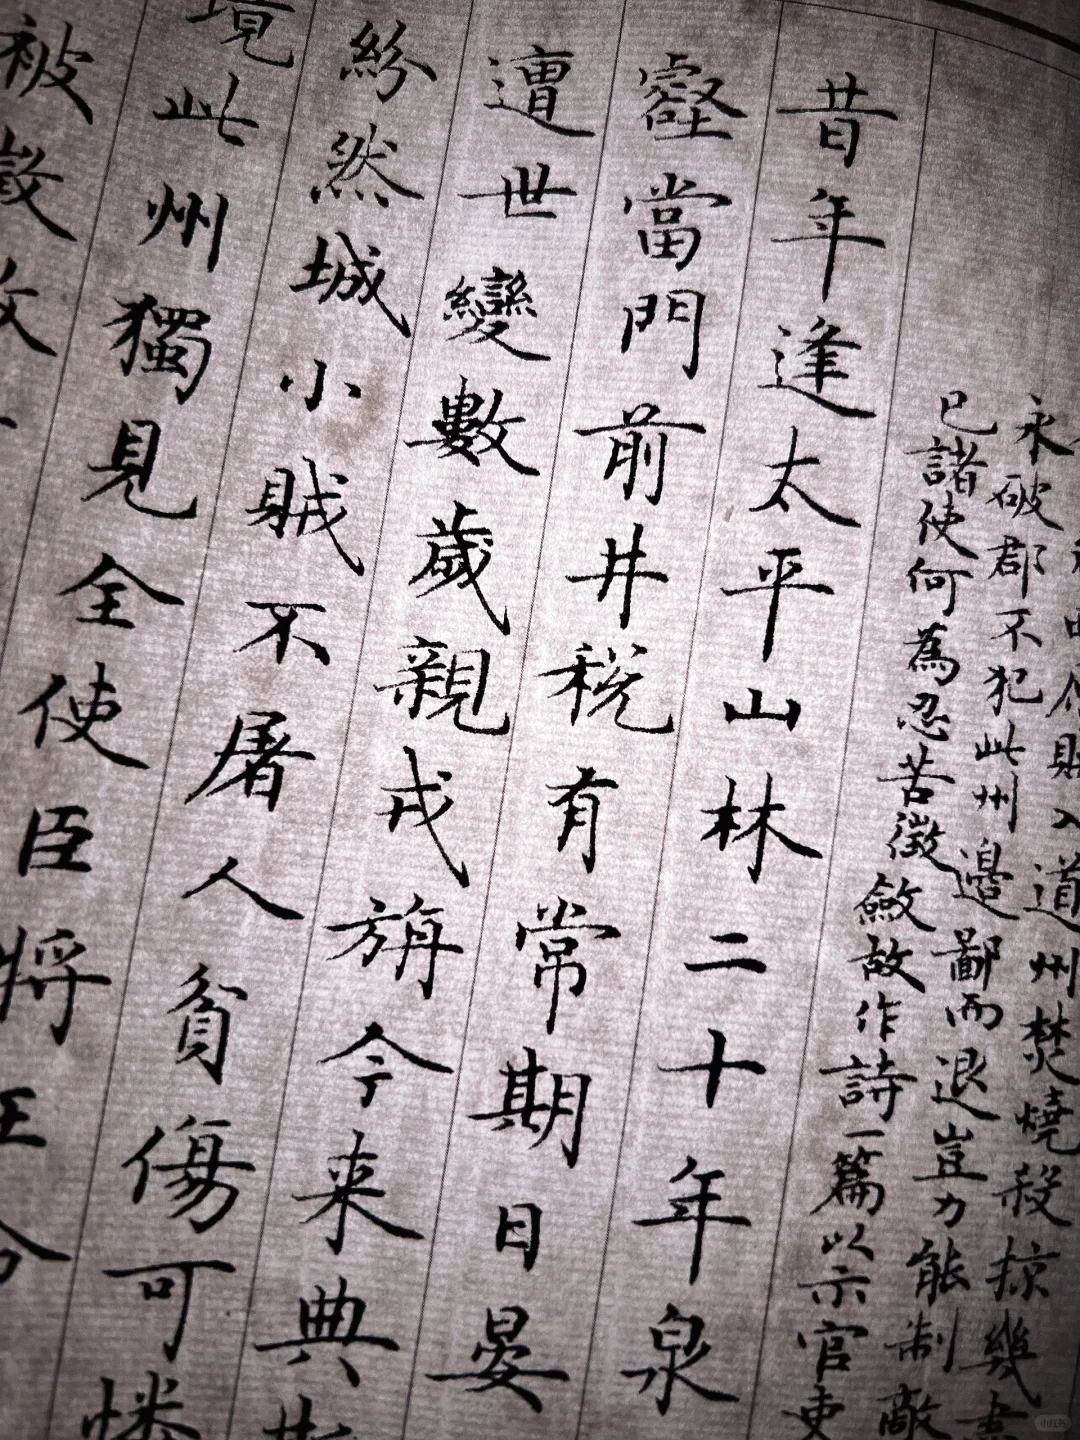 賊入道州焚燒殺掠幾盡
永破郡不犯此州邊鄙而退豈力能制敵
已諸使何為忍苦徵斂故作詩一篇以示官吏
昔年逢太平山林二十年泉
壑當門前井稅有常期日晏
遭世變數歲親戎旃今来典斯
紛然城小賊不屠人貧傷可憐
境此州獨見全使臣將王
被